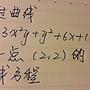 过曲线
3x²y+y²+6x+1
一点(2,2)的
方程